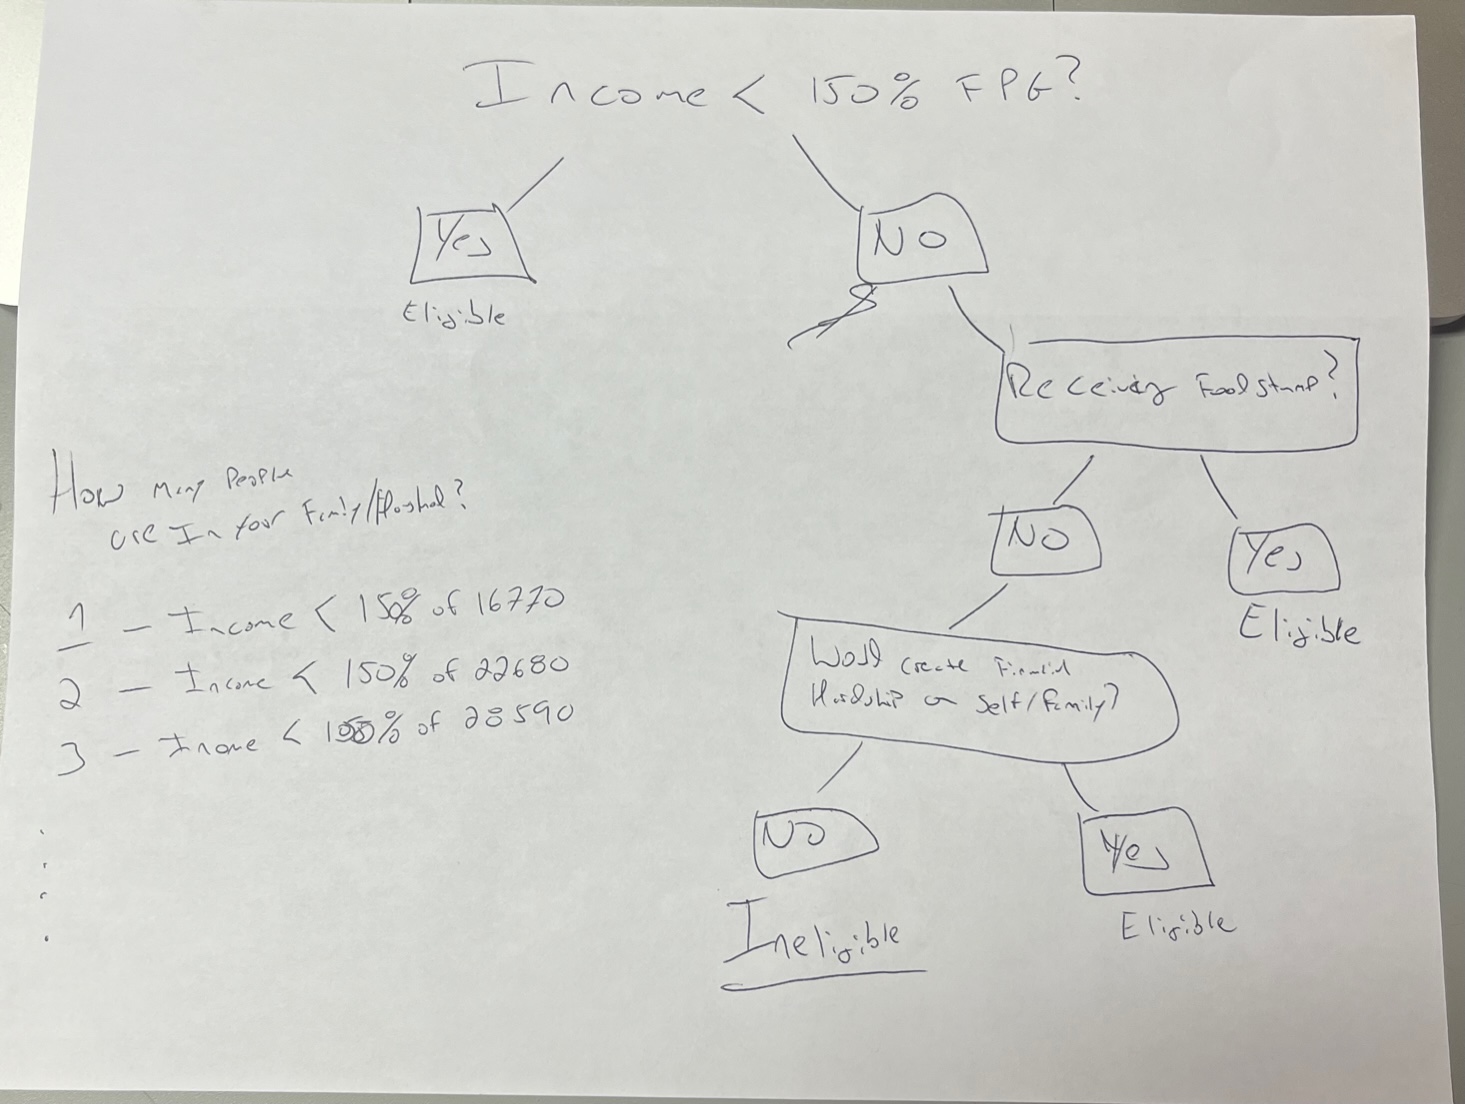 Income < 150% FPG?
Yes
Eligible
NO
Receiving Foodstamp?
NO
Yes
Eligible
Would create Financial
Hardship on Self/Family?
NO
Ineligible
Yes
Eligible
How Many People
are In your Family/Household?
1 — Income < 150% of 16770
2 — Income < 150% of 22680
3 — Income < 150% of 28590